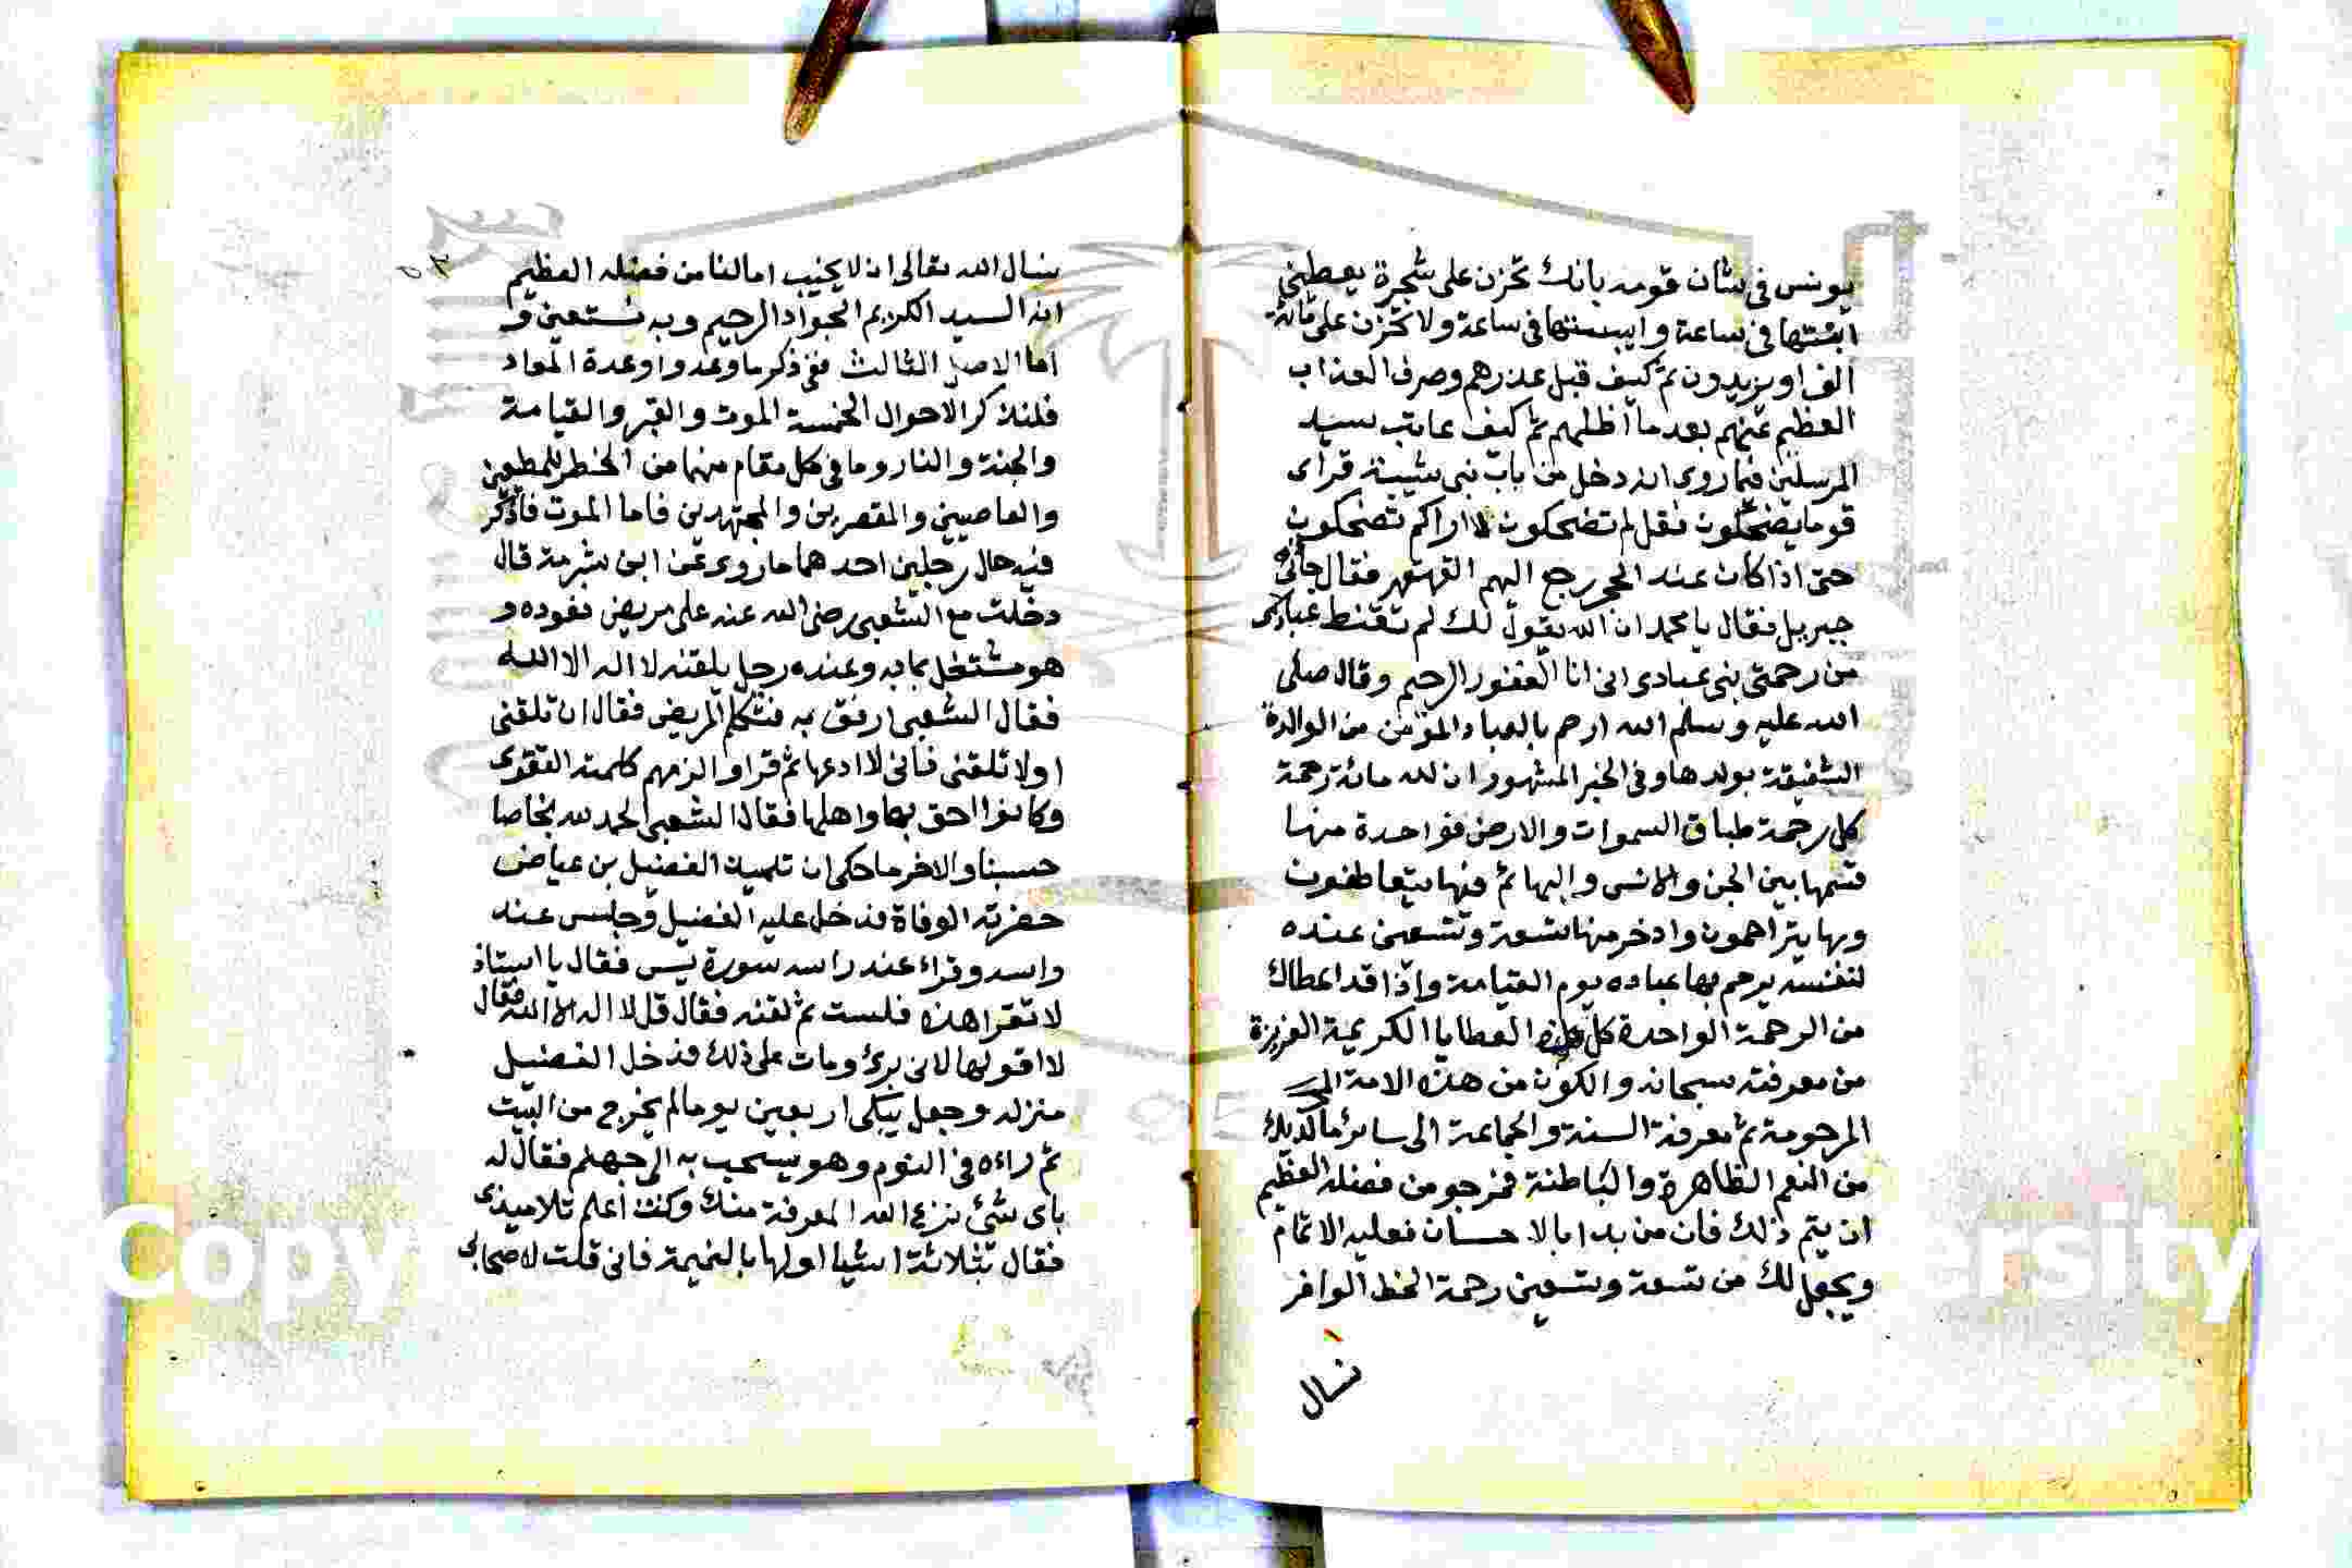 يونس فى شان قومه بانك تحزن على شجرة يعطينى
انبتتها فى ساعة وايبستها فى ساعة ولا تحزن على مائة
الف او يزيدون ثم كيف قبل عذرهم وصرف العذاب
العظيم عنهم بعد ما اظلهم ثم كيف عاتب سيد
المرسلين فيما روى انه دخل من باب بنى شيبة فراى
قوما يضحكون فقل لم تضحكون لا اراكم تضحكون
حتى اذا كان عند الحجر رجع اليهم القهقهر فقال جائنى
جبريل فقال يا محمد ان الله يقول لك لم تقنط عبادى
من رحمتى نبى عبادى انى انا الغفور الرحيم وقال صلى
الله عليه وسلم الله ارحم بالعباد المؤمن من الوالدة
الشفيقة بولدها وفى الخبر المشهور ان لله مائة رحمة
كل رحمة طباق السموات والارض فواحدة منها
قسمها بين الجن والانس والبهائم فبها يتعاطفون
وبها يتراحمون وادخر منها تسعة وتسعين عنده
لنفسه يرحم بها عباده يوم القيامة واذا قد اعطاك
من الرحمة الواحدة كل هذه العطايا الكريمة العزيزة
من معرفته سبحانه والكون من هذه الامة الى
المرحومة ثم معرفة السنة والجماعة الى سائر ما لديك
من النعم الظاهرة والباطنة فنرجو من فضله العظيم
ان يتم ذلك فان من بدا بالاحسان فعليه الاتمام
ويجعل لك من تسعة وتسعين رحمة الحظ الوافر
نسال
نسال الله تعالى ان لا يخيب امالنا من فضله العظيم
انه السيد الكريم الجواد الرحيم وبه نستعين و
اما الاصل الثالث ففى ذكر ما وعد واوعدة المعاد
فلنذكر الاحوال الخمسة الموت والقبر والقيامة
والجنة والنار وما فى كل مقام منها من الخطر للمطيعين
والعاصيين والمقصرين والمجتهدين فاما الموت فاذكر
فيه حال رجلين احدهما ما روى عن ابن شبرمة قال
دخلت مع الشعبى رضى الله عنه على مريض نعوده و
هو مشتغل بمابه وعنده رجل يلقنه لا اله الا الله
فقال الشعبى ارفق به فتكلم المريض فقال ان تلقنى
اولا تلقنى فانى لا ادعها ثم قرا والزمهم كلمة التقوى
وكانوا احق بها واهلها فقال الشعبى الحمد لله نجاصا
حسبنا والاخر ما حكى ان تلميذ الفضيل بن عياض
حضرته الوفاة فدخل عليه الفضيل وجلس عند
راسه وقراء عند راسه سورة يس فقال يا استاذ
لا تقرا هذه فلست ثم لقنه فقال قل لا اله الا الله فقال
لا اقولها لانى برئ ومات على ذلك فدخل الفضيل
منزله وجعل يبكى اربعين يوما لم يخرج من البيت
ثم راءه فى النوم وهو يسحب به الى جهنم فقال له
باى شئ نزع الله المعرفة منك وكنت اعلم تلاميذى
فقال بثلاثة اشيا اولها بالنميمة فانى قلت لاصحابى
Copy
rsity